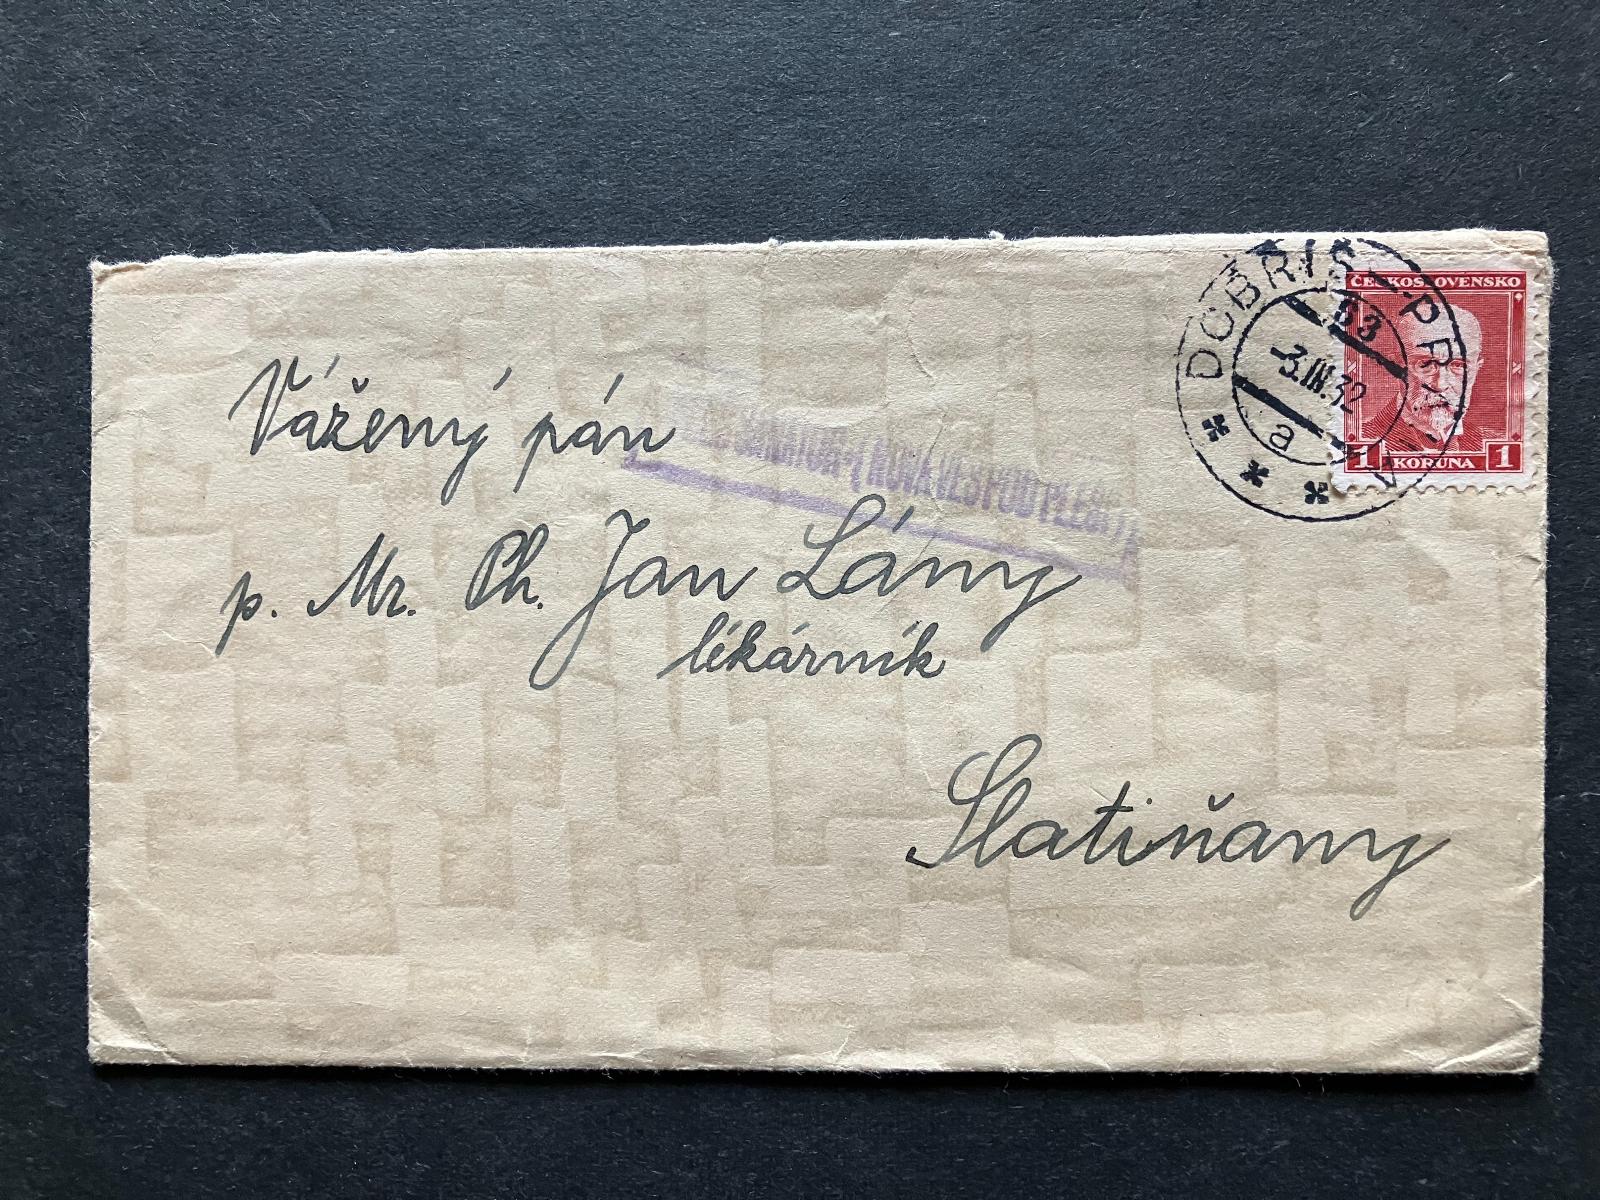 DOBŘÍŠ - PRAHA
63
-3.III.32
a
ČESKOSLOVENSKO
1 KORUNA 1
Vážený pán
SANATOR- (NOVÁ VES POD PLEŠÍ)
p. Mr. Ph. Jan Lány
lékárník
Slatiňany